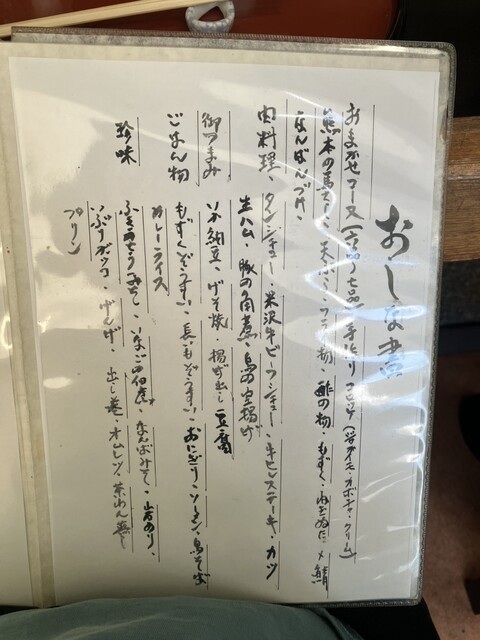 おしな書
おまかせコース(六品〜七品)手造りコロッケ(ジャガイモ・カボチャ・クリーム)
熊本の馬さし・天ぷら・フライ物・酢の物・もずく・〆鯖
なんばんづけ・
肉料理、タンシチュー・米沢牛ビーフシチュー・牛ヒレステーキ・カツ
生ハム・豚の角煮・鳥の空揚げ
御つまみ いか納豆・げそ焼・揚げ出し豆腐
ごはん物 もずくぞうすい・長いもぞうすい・おにぎり・ソーメン・鳥そぼ
カレーライス
珍味 ふきみそ・いなごの佃煮・なんばみそ・
いぶりガッコ・げんげ・出し巻・オムレツ・茶わん蒸し
プリン